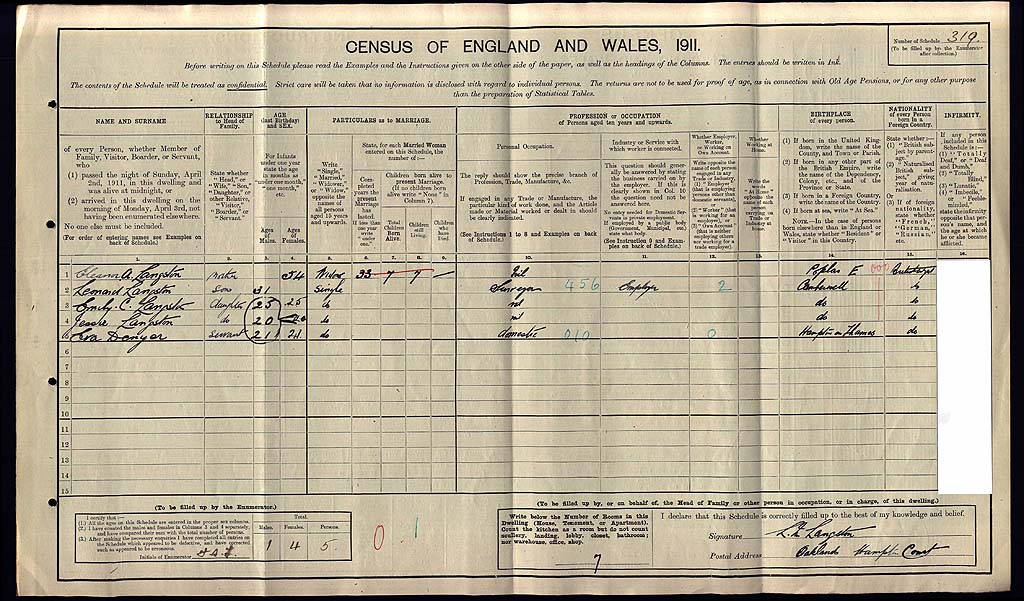 CENSUS OF ENGLAND AND WALES, 1911.
Number of Schedule 319.
(To be filled up by the Enumerator
after collection.)
Before writing on this Schedule please read the Examples and the Instructions given on the other side of the paper, as well as the headings of the Columns. The entries should be written in Ink.
The contents of the Schedule will be treated as confidential. Strict care will be taken that no information is disclosed with regard to individual persons. The returns are not to be used for proof of age, as in connection with Old Age Pensions, or for any other purpose
than the preparation of Statistical Tables.
NAME AND SURNAME
of every Person, whether Member of
Family, Visitor, Boarder, or Servant,
who
(1) passed the night of Sunday, April
2nd, 1911, in this dwelling and
was alive at midnight, or
(2) arrived in this dwelling on the
morning of Monday, April 3rd, not
having been enumerated elsewhere.
No one else must be included.
(For order of entering names see Examples on
back of Schedule.)
RELATIONSHIP
to Head of
Family.
State whether
"Head," or
"Wife," "Son,"
"Daughter," or
other Relative,
"Visitor,"
"Boarder," or
"Servant."
AGE
(last Birthday)
and SEX.
For Infants
under one year
state the age
in months as
"under one month,"
"one month,"
etc.
Ages
of
Males.
Ages
of
Females.
PARTICULARS as to MARRIAGE.
Write
"Single,"
"Married,"
"Widower,"
or "Widow,"
opposite the
names of
all persons
aged 15 years
and upwards.
State, for each Married Woman
entered on this Schedule, the
number of:—
Completed
years the
present
Marriage
has
lasted.
If less than
one year
write
"under
one."
Children born alive to
present Marriage.
(If no children born
alive write "None" in
Column 7).
Total
Children
Born
Alive.
Children
still
Living.
Children
who
have
Died.
PROFESSION or OCCUPATION
of Persons aged ten years and upwards.
Personal Occupation.
The reply should show the precise branch of
Profession, Trade, Manufacture, &c.
If engaged in any Trade or Manufacture, the
particular kind of work done, and the Article
made or Material worked or dealt in should
be clearly indicated.
(See Instructions 1 to 8 and Examples on back
of Schedule.)
Industry or Service with
which worker is connected.
This question should generally
be answered by stating
the business carried on by
the employer. If this is
clearly shown in Col. 10
the question need not be
answered here.
No entry needed for Domestic Servants
in private employment.
If employed by a public body
(Government, Municipal, etc.)
state what body.
(See Instruction 9 and Examples
on back of Schedule.)
Whether Employer,
Worker, or Working
on Own Account.
Whether
Working at
Home.
Write the
words
"At Home"
opposite the
name of each
person
carrying on
Trade or
Industry
at home.
BIRTHPLACE
of every person.
(1) If born in the United Kingdom,
write the name of the
County, and Town or Parish.
(2) If born in any other part of
the British Empire, write
the name of the Dependency,
Colony, etc., and of the
Province or State.
(3) If born in a Foreign Country,
write the name of the Country.
(4) If born at sea, write "At Sea."
NOTE.—In the case of persons
born elsewhere than in England or
Wales, state whether "Resident" or
"Visitor" in this Country.
NATIONALITY
of every Person
born in a
Foreign Country.
State whether:—
(1) "British subject
by parentage."
(2) "Naturalised
British subject,"
giving
year of naturalisation.
Or
(3) If of foreign
nationality,
state whether
"French,"
"German,"
"Russian,"
etc.
INFIRMITY.
1 Eleanor A. Langston Widow 54 Widow 33 7 7 — Nil Poplar E
2 Leonard Langston Son 31 Single Surveyor 456 Employer 2 Camberwell do
3 Emily C. Langston Daughter 25 25 do nil do do
4 Jessie Langston do 20 20 do nil do do
5 Eva Denyer Servant 21 21 do domestic 010 0 Hampton on Thames do
6
7
8
9
10
11
12
13
14
15
(To be filled up by the Enumerator.)
I certify that:—
(1.) All the ages on this Schedule are entered in the proper sex columns.
(2.) I have counted the males and females in Columns 3 and 4 separately,
and have compared their sum with the total number of persons.
(3.) After making the necessary enquiries I have completed all entries on
the Schedule which appeared to be defective, and have corrected
such as appeared to be erroneous.
Initials of Enumerator
Total.
Males. Females. Persons.
1 4 5
0.1
(To be filled up by, or on behalf of, the Head of Family or other person in occupation, or in charge, of this dwelling.)
Write below the Number of Rooms in this
Dwelling (House, Tenement, or Apartment).
Count the kitchen as a room but do not count
scullery, landing, lobby, closet, bathroom;
nor warehouse, office, shop.
7
I declare that this Schedule is correctly filled up to the best of my knowledge and belief.
Signature Langston
Postal Address Oaklands Hampton Court